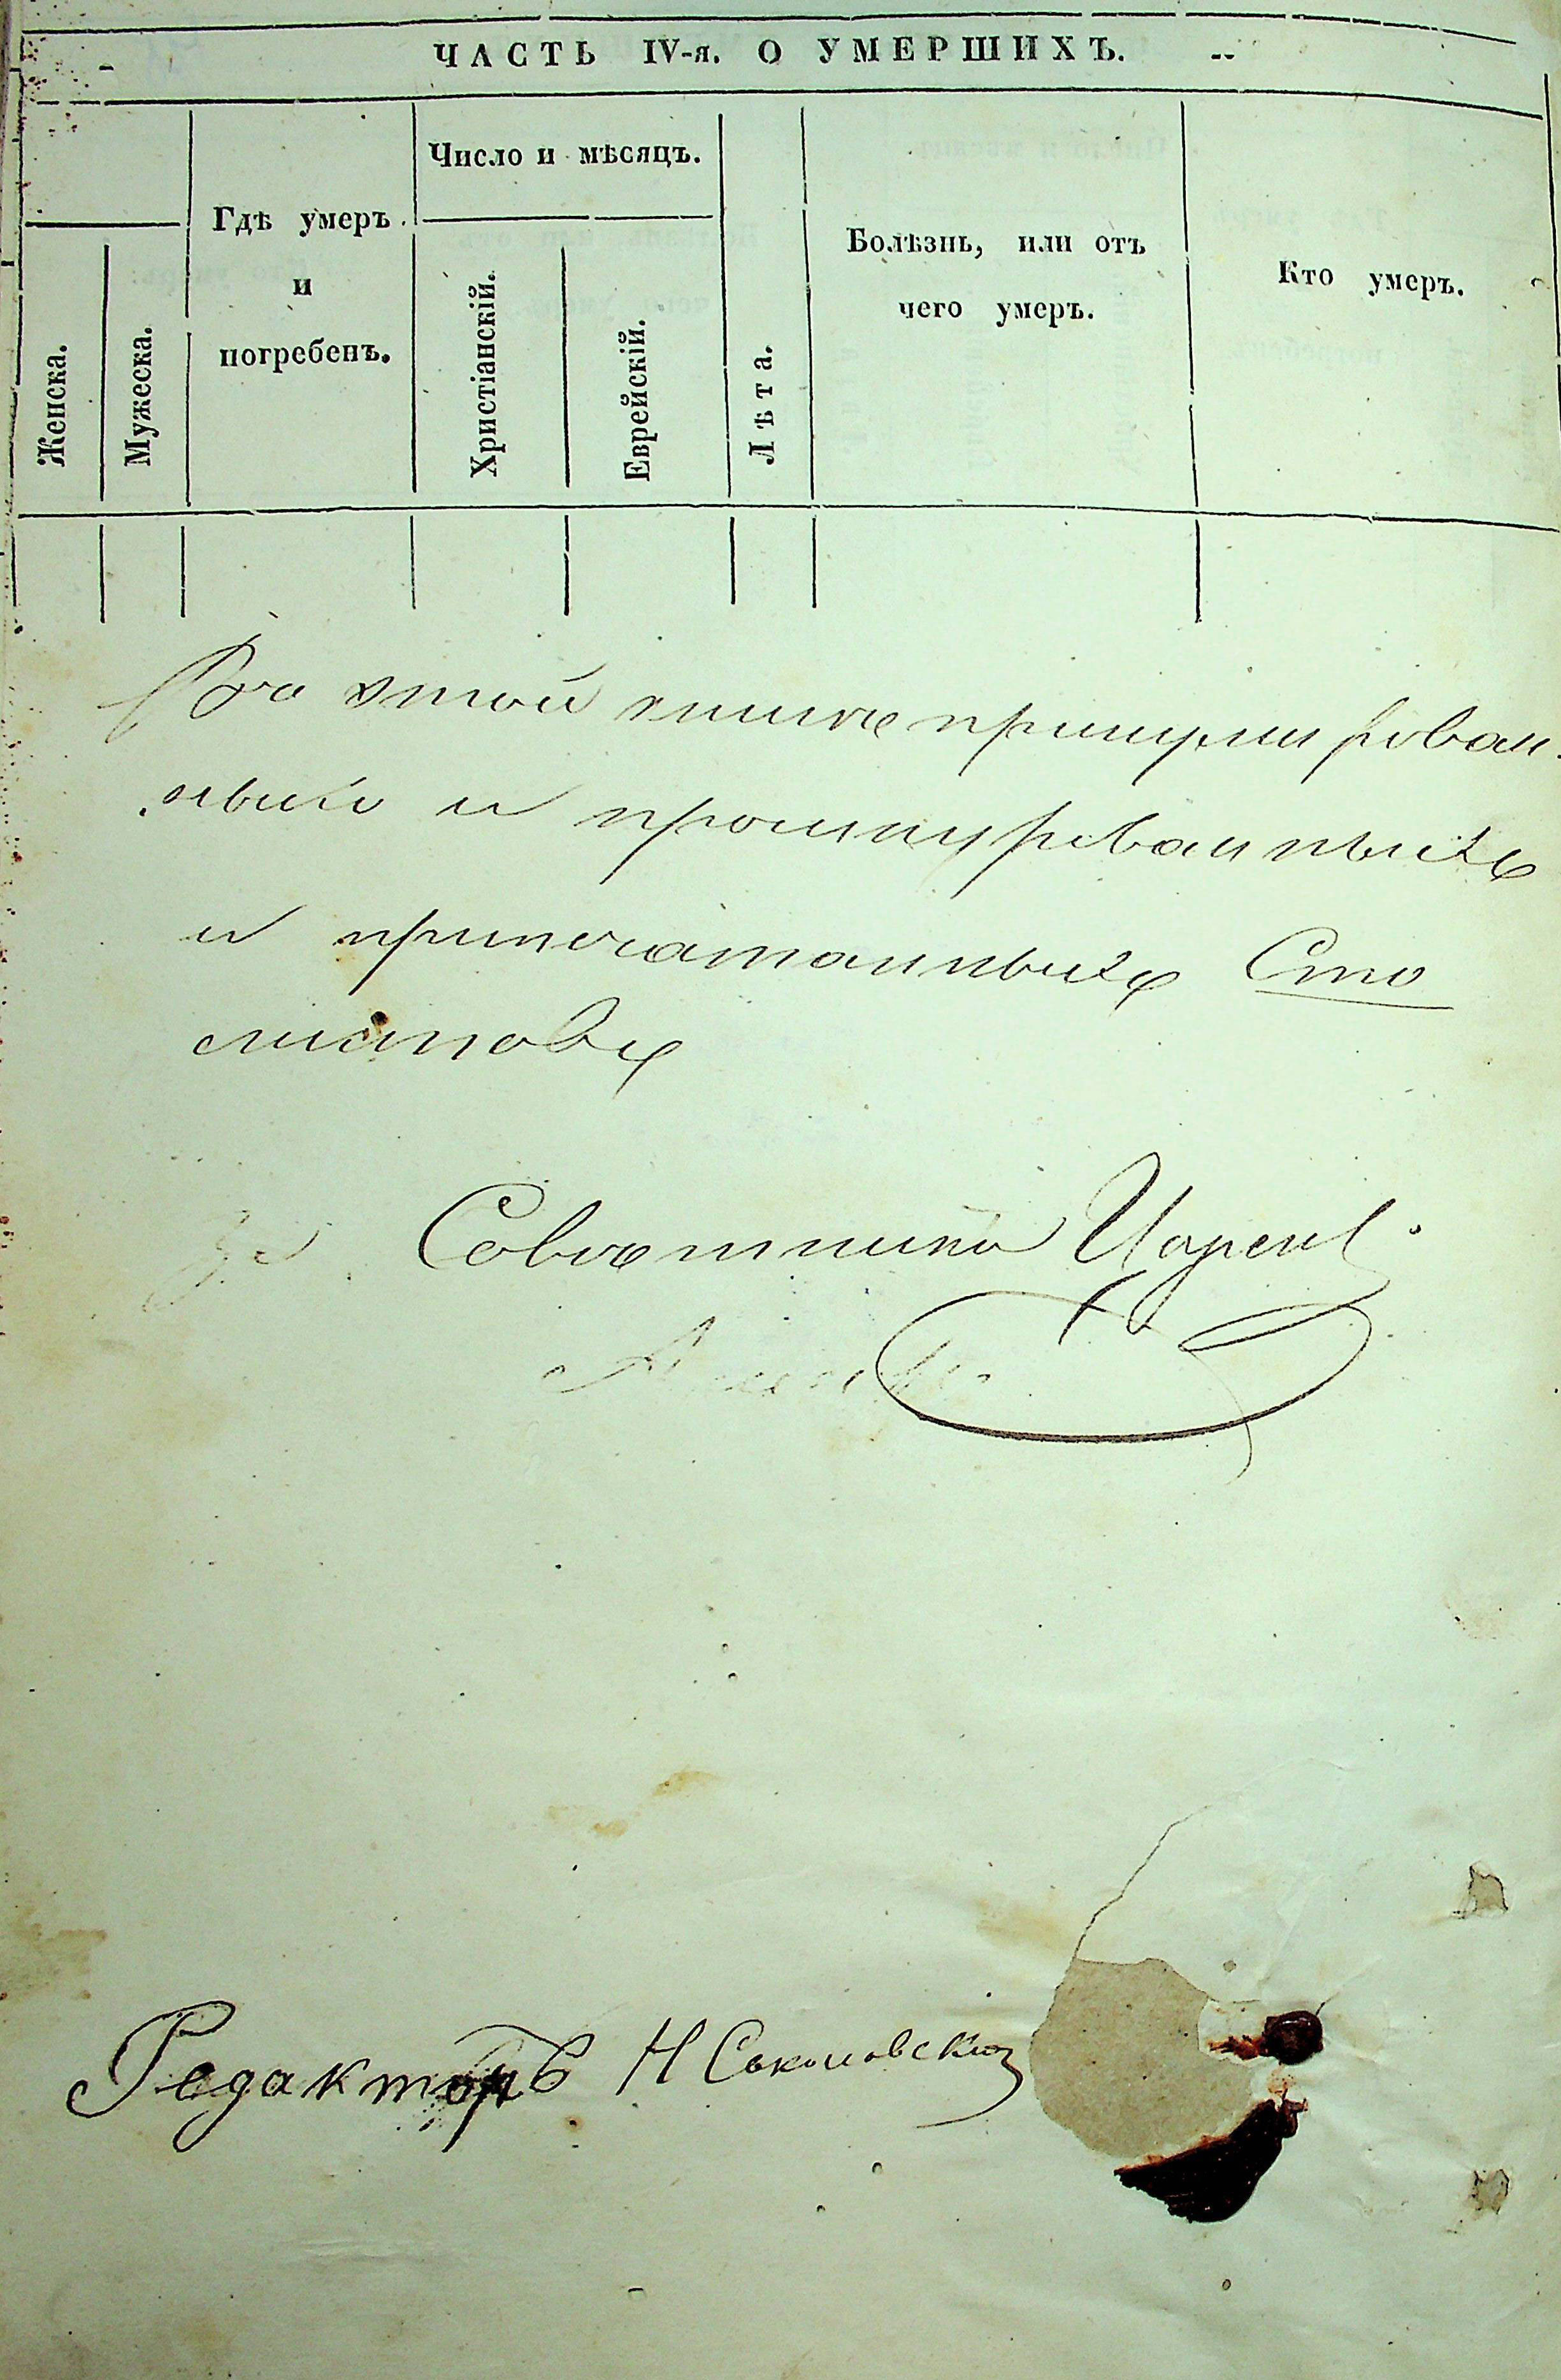 ЧАСТЬ IV-я. О УМЕРШИХЪ.
Женска.
Мужеска.
Гдѣ умеръ
и
погребенъ.
Число и мѣсяцъ.
Христіанскій.
Еврейскій.
Лѣта.
Болѣзнь, или отъ
чего умеръ.
Кто умеръ.
Въ этой книгѣ
и прошнурованныхъ
и припечатанныхъ Сто
листовъ
Совѣтникъ
Редакторъ Н